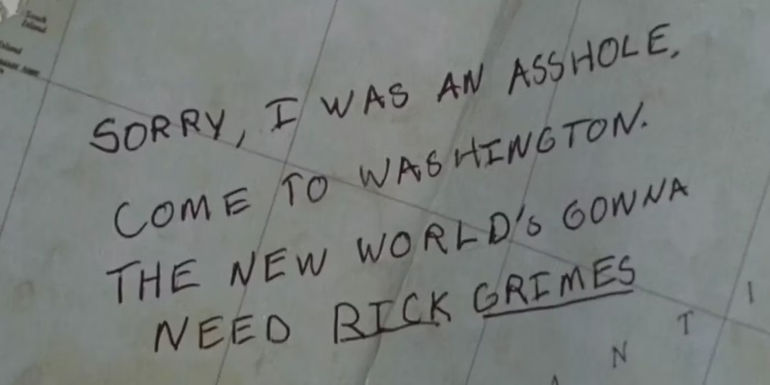 South
Island
Island
SORRY, I WAS AN ASSHOLE.
COME TO WASHINGTON.
THE NEW WORLD'S GONNA
NEED RICK GRIMES
A N T I